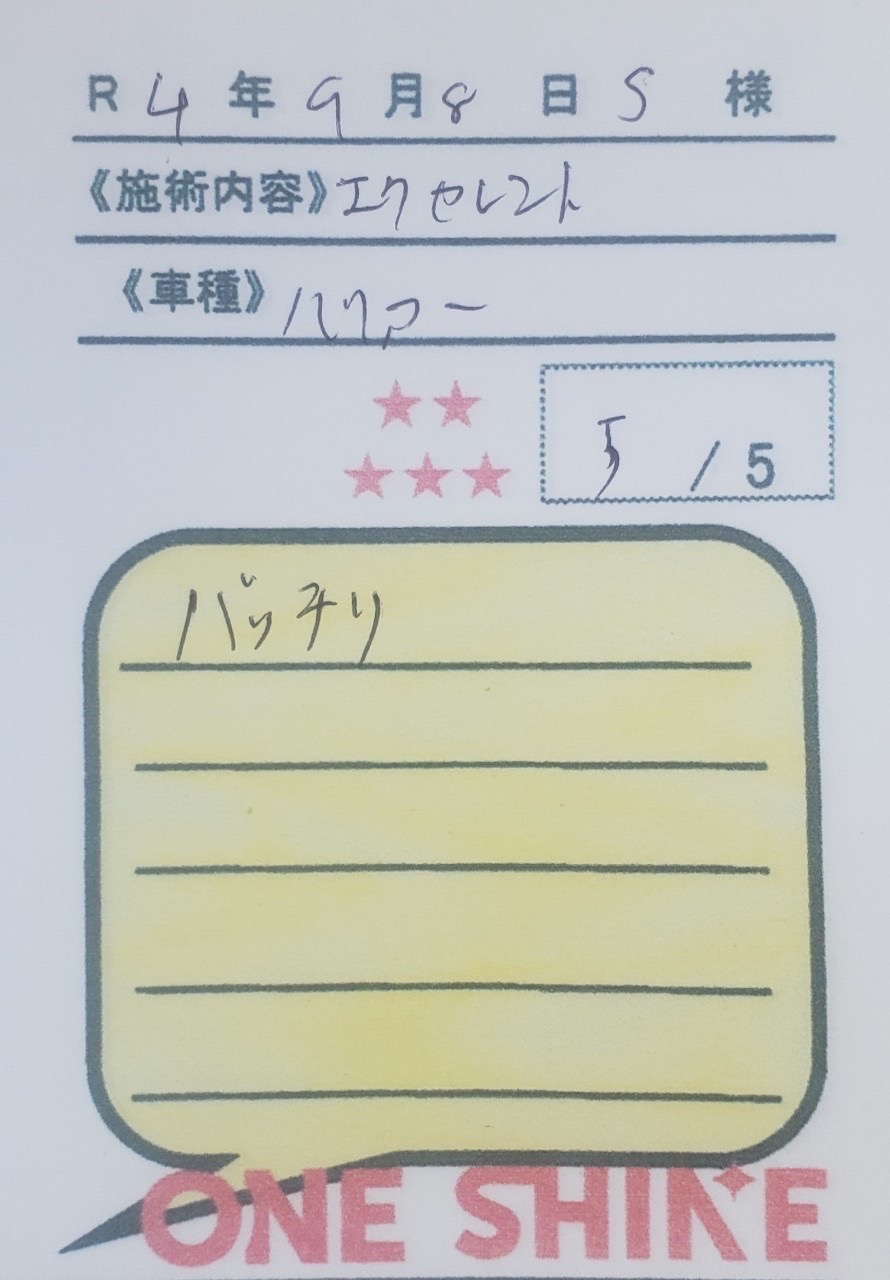 R 4 年 9 月 8 日 S 様
《施術内容》エクセレント
《車種》ハリアー
5 / 5
バッチリ
ONE SHINE